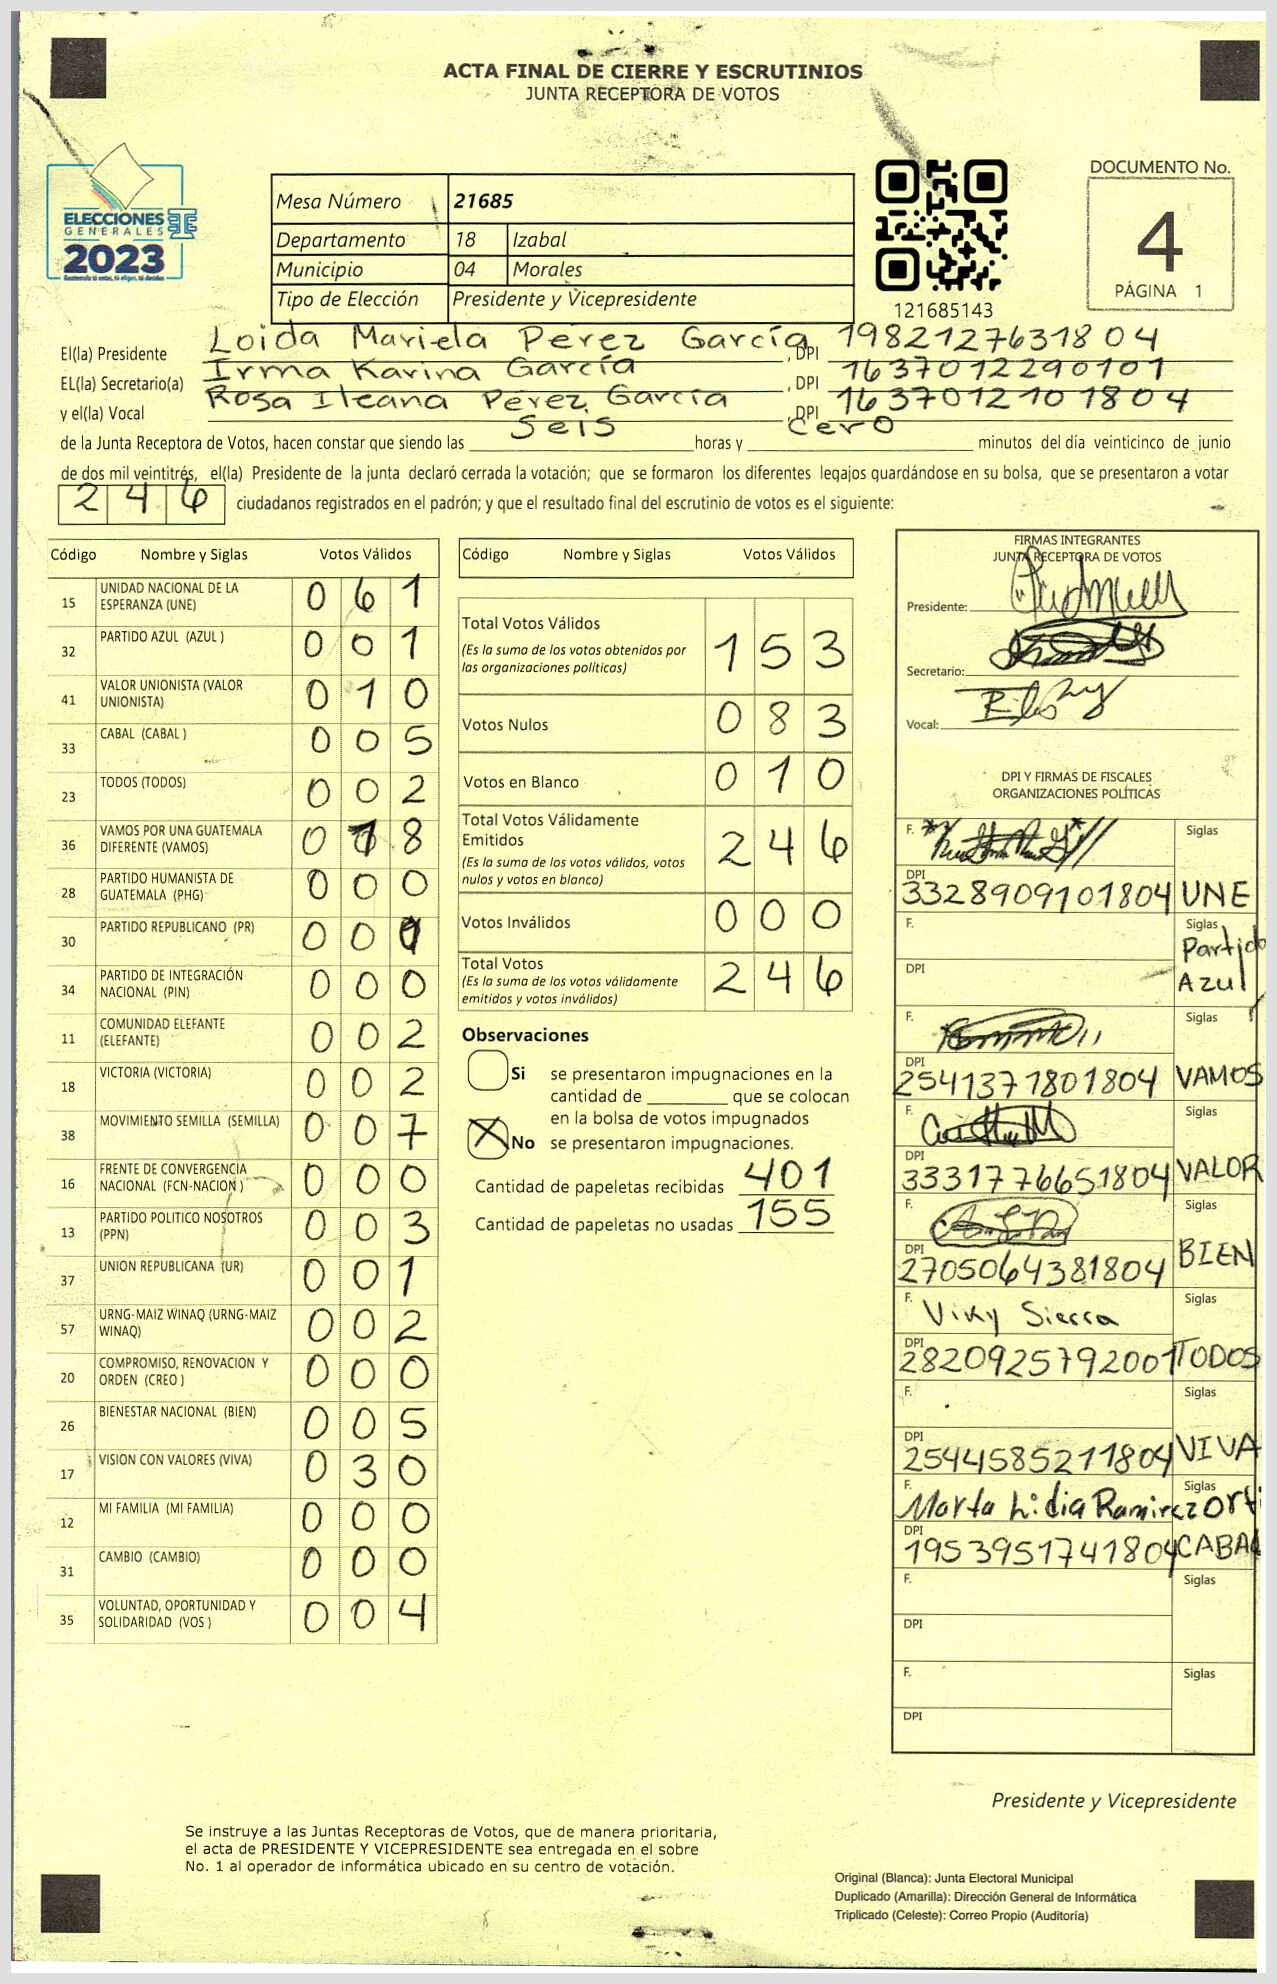 ACTA FINAL DE CIERRE Y ESCRUTINIOS
JUNTA RECEPTORA DE VOTOS
ELECCIONES
GENERALES
2023
Mesa Número 21685
Departamento 18 Izabal
Municipio 04 Morales
Tipo de Elección Presidente y Vicepresidente
121685143
DOCUMENTO No.
4
PÁGINA 1
El(la) Presidente Loida Mariela Perez García , DPI 1982127631804
EL(la) Secretario(a) Irma Karina García , DPI 1637012290101
y el(la) Vocal Rosa Ileana Pérez García , DPI 1637012101804
de la Junta Receptora de Votos, hacen constar que siendo las Seis horas y Cero minutos del día veinticinco de junio
de dos mil veintitrés, el(la) Presidente de la junta declaró cerrada la votación; que se formaron los diferentes legajos guardándose en su bolsa, que se presentaron a votar
246 ciudadanos registrados en el padrón; y que el resultado final del escrutinio de votos es el siguiente:
Código Nombre y Siglas Votos Válidos
15 UNIDAD NACIONAL DE LA ESPERANZA (UNE) 061
32 PARTIDO AZUL (AZUL ) 001
41 VALOR UNIONISTA (VALOR UNIONISTA) 010
33 CABAL (CABAL ) 005
23 TODOS (TODOS) 002
36 VAMOS POR UNA GUATEMALA DIFERENTE (VAMOS) 018
28 PARTIDO HUMANISTA DE GUATEMALA (PHG) 000
30 PARTIDO REPUBLICANO (PR) 001
34 PARTIDO DE INTEGRACIÓN NACIONAL (PIN) 000
11 COMUNIDAD ELEFANTE (ELEFANTE) 002
18 VICTORIA (VICTORIA) 002
38 MOVIMIENTO SEMILLA (SEMILLA) 007
16 FRENTE DE CONVERGENCIA NACIONAL (FCN-NACION ) 000
13 PARTIDO POLITICO NOSOTROS (PPN) 003
37 UNION REPUBLICANA (UR) 001
57 URNG-MAIZ WINAQ (URNG-MAIZ WINAQ) 002
20 COMPROMISO, RENOVACION Y ORDEN (CREO ) 000
26 BIENESTAR NACIONAL (BIEN) 005
17 VISION CON VALORES (VIVA) 030
12 MI FAMILIA (MI FAMILIA) 000
31 CAMBIO (CAMBIO) 000
35 VOLUNTAD, OPORTUNIDAD Y SOLIDARIDAD (VOS ) 004
Código Nombre y Siglas Votos Válidos
Total Votos Válidos 153
(Es la suma de los votos obtenidos por
las organizaciones políticas)
Votos Nulos 083
Votos en Blanco 010
Total Votos Válidamente
Emitidos 246
(Es la suma de los votos válidos, votos
nulos y votos en blanco)
Votos Inválidos 000
Total Votos 246
(Es la suma de los votos válidamente
emitidos y votos inválidos)
Observaciones
Si se presentaron impugnaciones en la
cantidad de ________ que se colocan
en la bolsa de votos impugnados
X No se presentaron impugnaciones.
Cantidad de papeletas recibidas 401
Cantidad de papeletas no usadas 155
FIRMAS INTEGRANTES
JUNTA RECEPTORA DE VOTOS
Presidente:
Secretario:
Vocal:
DPI Y FIRMAS DE FISCALES
ORGANIZACIONES POLÍTICAS
F. Siglas
DPI 3328909101804 UNE
F. Siglas
DPI Partido Azul
F. Siglas
DPI 2541371801804 VAMOS
F. Siglas
DPI 3331776651804 VALOR
F. Siglas
DPI 2705064381804 BIEN
F. Viky Sierra Siglas
DPI 2820925792001 TODOS
F. Siglas
DPI 2544585211804 VIVA
F. Marta Lidia Ramirez Orti Siglas
DPI 1953951741804 CABAL
F. Siglas
DPI
F. Siglas
DPI
Presidente y Vicepresidente
Se instruye a las Juntas Receptoras de Votos, que de manera prioritaria,
el acta de PRESIDENTE Y VICEPRESIDENTE sea entregada en el sobre
No. 1 al operador de informática ubicado en su centro de votación.
Original (Blanca): Junta Electoral Municipal
Duplicado (Amarilla): Dirección General de Informática
Triplicado (Celeste): Correo Propio (Auditoría)